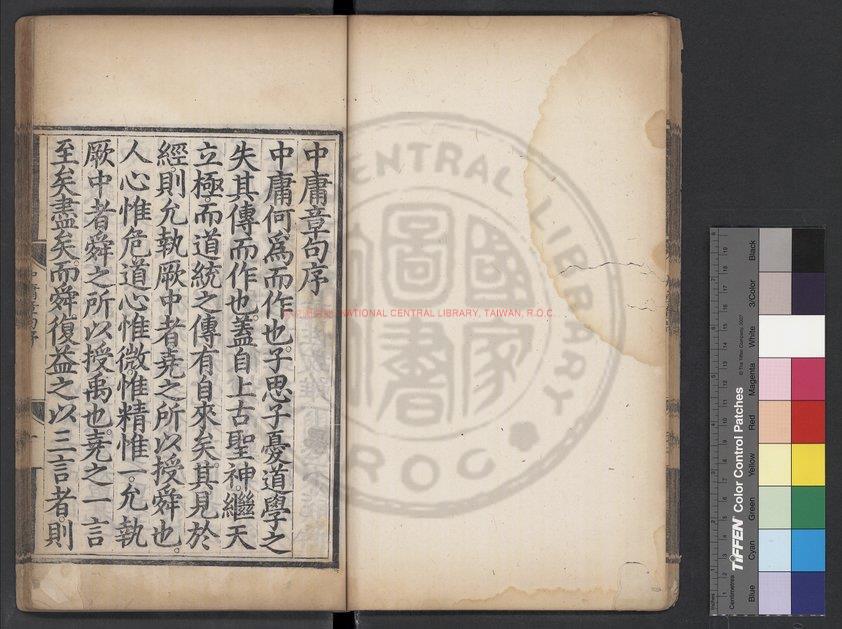 中庸章句序
中庸何爲而作也。子思子憂道學之
失其傳而作也。蓋自上古聖神繼天
立極。而道統之傳有自來矣。其見於
經。則允執厥中者堯之所以授舜也。
人心惟危。道心惟微。惟精惟一。允執
厥中者舜之所以授禹也。堯之一言
至矣盡矣。而舜復益之以三言者。則
國家圖書
CENTRAL LIBRARY
ROC
NATIONAL CENTRAL LIBRARY, TAIWAN, R.O.C.
TIFFEN Color Control Patches
© The Tiffen Company, 2007
Inches
Centimetres
Blue
Cyan
Green
Yellow
Red
Magenta
White
3/Color
Black